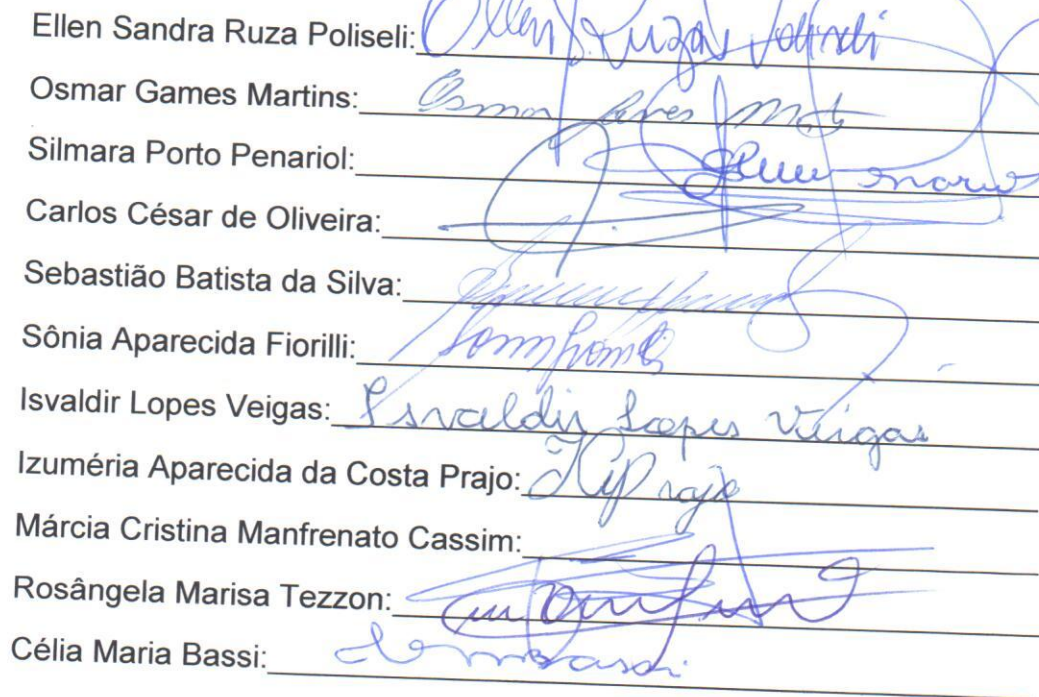 Ellen Sandra Ruza Poliseli: Ellen S. Ruza Poliseli
Osmar Games Martins: Osmar
Silmara Porto Penariol:
Carlos César de Oliveira:
Sebastião Batista da Silva:
Sônia Aparecida Fiorilli:
Isvaldir Lopes Veigas: Isvaldir Lopes Veigas
Izuméria Aparecida da Costa Prajo:
Márcia Cristina Manfrenato Cassim:
Rosângela Marisa Tezzon:
Célia Maria Bassi: